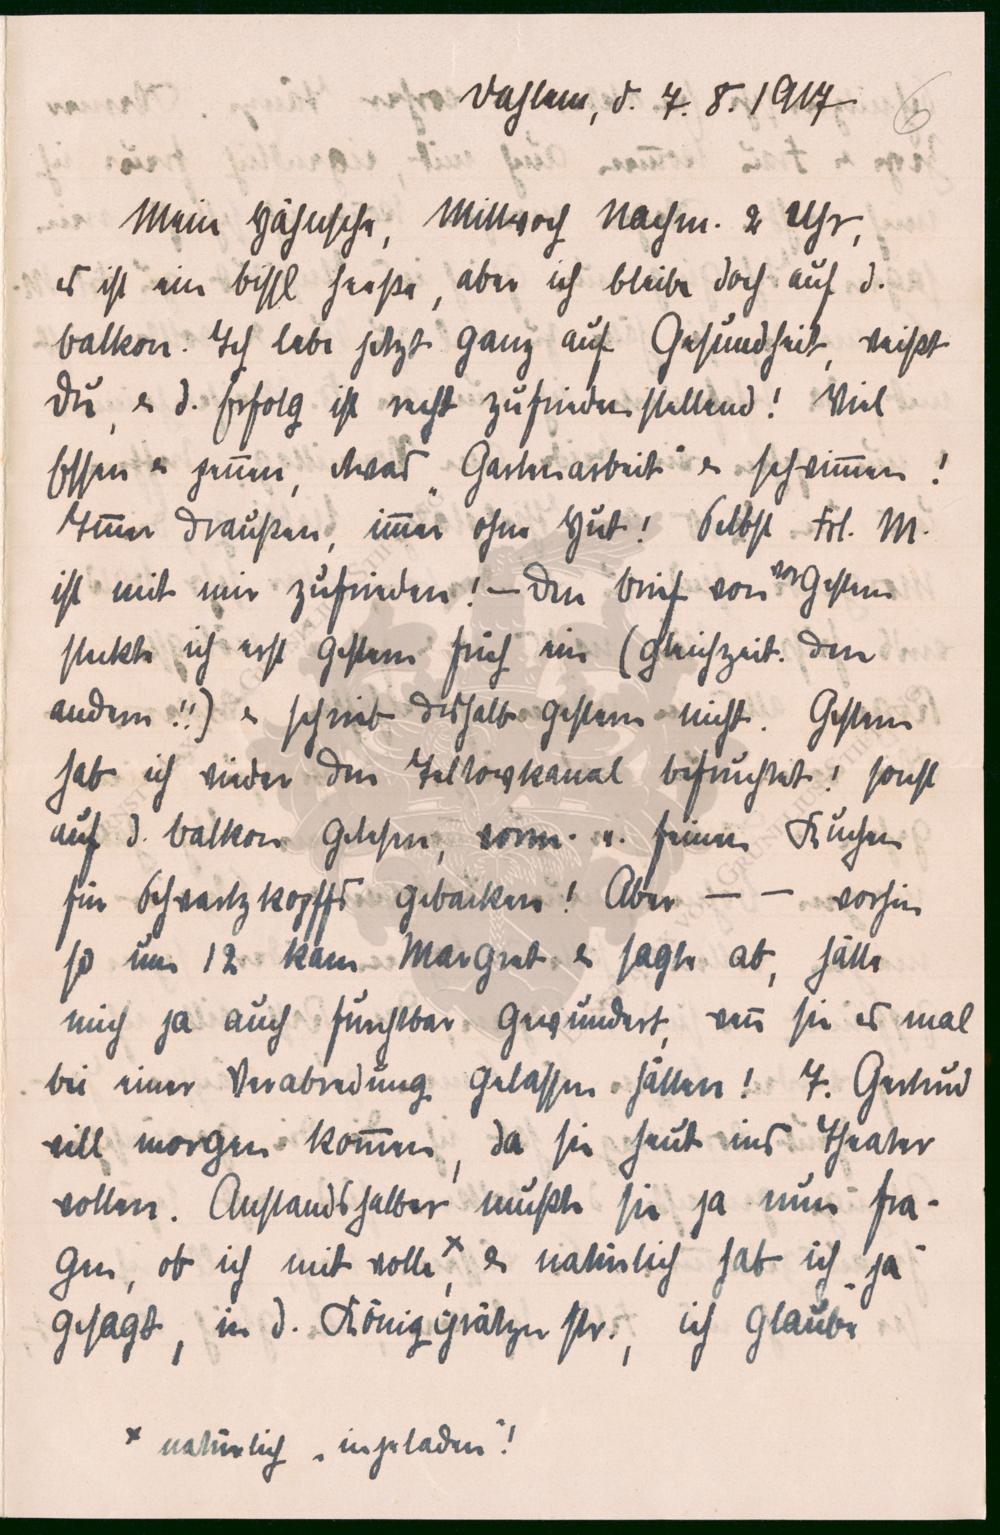 Dahlem, d. 7. 8. 1917
6
Mein Hähnsche, Mittwoch Nachm. 2 Uhr,
es ist ein bissl heeße, aber ich bleibe doch auf d.
Balkon. Ich lebe jetzt ganz auf Gesundheit, weißt
Du, & d. Erfolg ist recht zufriedenstellend! Viel
Essen & pennen, etwas „Gartenarbeit" & schwim̅en!
Im̅er draußen, im̅er ohne Hut! Selbst Frl. M.
ist mit mir zufrieden! – Den Brief von vorGestern
steckte ich erst gestern früh ein (gleichzeit. den
andern!!) & schrieb deshalb gestern nicht. Gestern
hab ich wieder den Teltowkanal befruchtet! sonst
auf d. Balkon gelesen, vorm. n. feinen Kuchen
für Schwartzkopffs gebacken! Aber – – vorhin
so um 12 kam Margret & sagte ab, hätte
mich ja auch furchtbar gewundert, wen̅ sie es mal
bei einer Verabredung gelassen hätten! T. Gertrud
will morgen kom̅en, da sie heut ins Theater
wollen. Anstandshalber mußte sie ja nun fra-
gen, ob ich mit wolle ×, & natürlich hab ich „ja"
gesagt, in d. Königgrätzer str., ich glaube
× natürlich „ingeladen"!